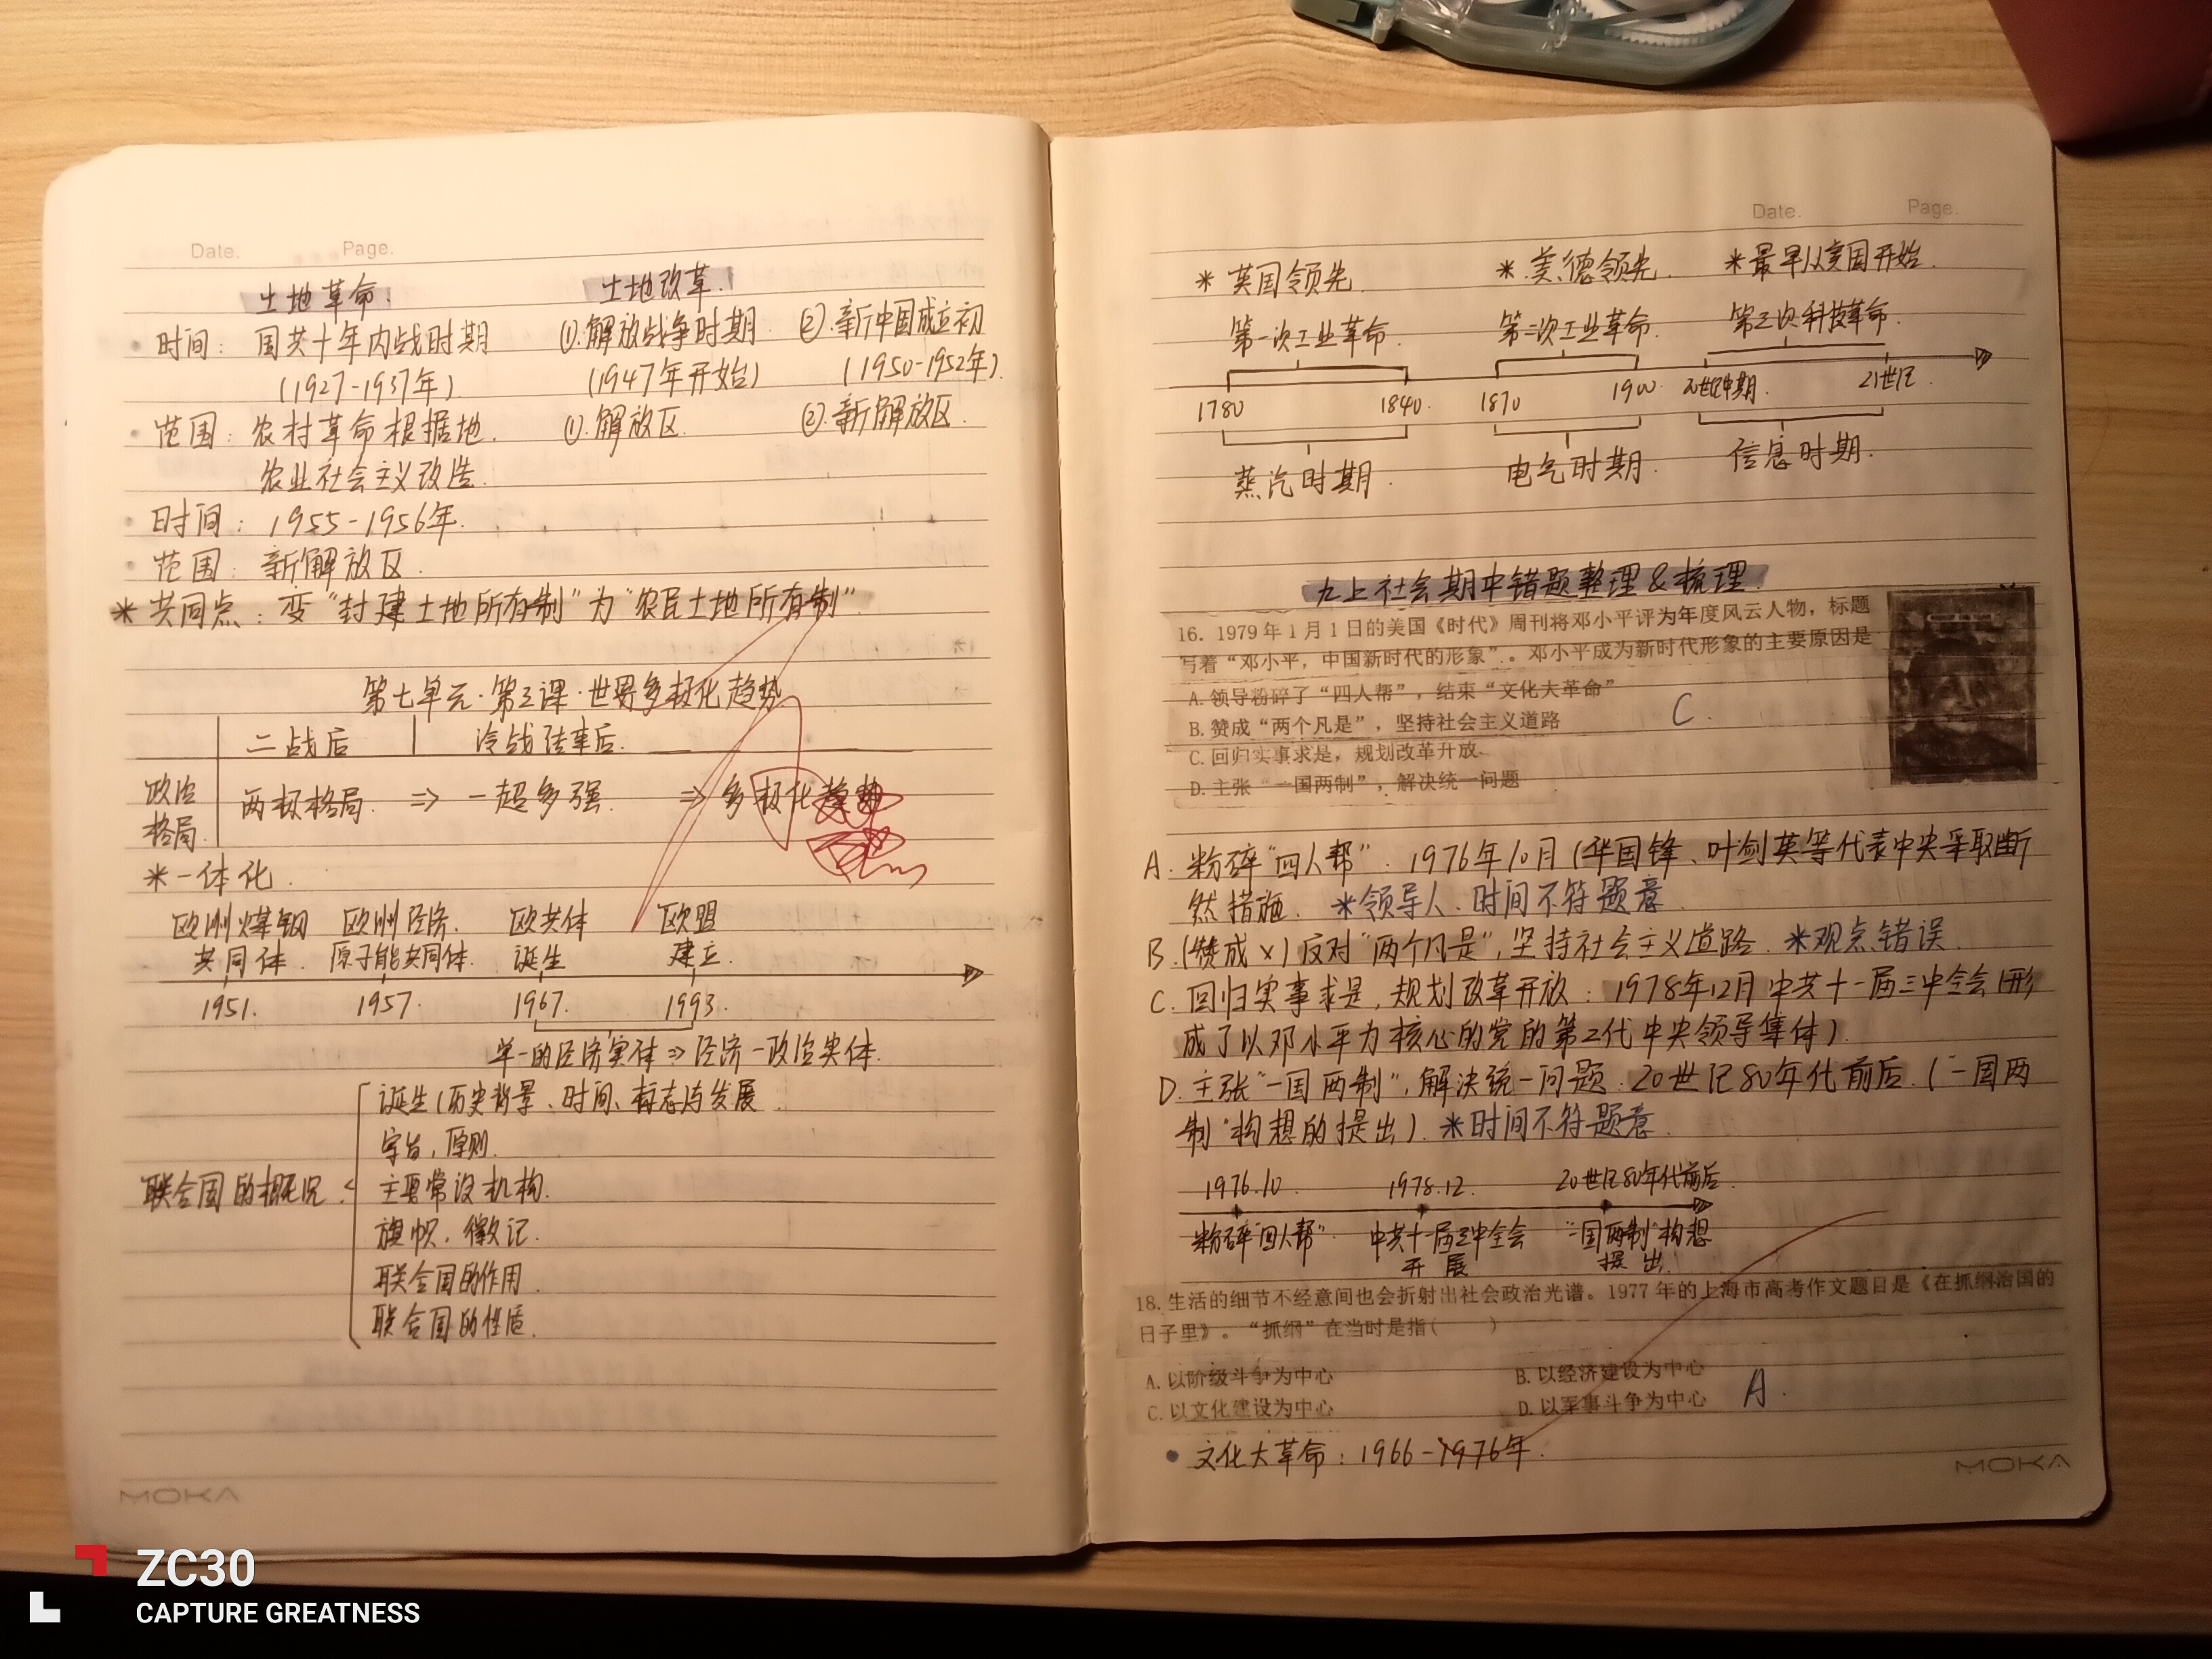 Date. Page.
土地革命. 土地改革.
时间: 国共十年内战时期 ①.解放战争时期 ②.新中国成立初
(1927-1937年) (1947年开始) (1950-1952年)
范围: 农村革命根据地. ①.解放区. ②.新解放区.
农业社会主义改造.
时间: 1955-1956年.
范围: 新解放区.
*共同点: 变"封建土地所有制"为"农民土地所有制".
第七单元·第3课·世界多极化趋势
二战后 冷战结束后.
政治格局. 两极格局. ⇒ 一超多强. ⇒ 多极化趋势
*一体化.
欧洲煤钢 欧洲经济. 欧共体 欧盟
共同体. 原子能共同体. 诞生 建立.
1951. 1957. 1967. 1993.
单一的经济实体⇒经济-政治实体.
诞生(历史背景、时间、标志与发展.
宗旨,原则.
联合国的概况. 主要常设机构.
旗帜,徽记.
联合国的作用.
联合国的性质.
MOKA
Date. Page.
*英国领先. *.美德领先. *最早从美国开始.
第一次工业革命. 第二次工业革命. 第三次科技革命.
1780 1840. 1870 1900. 20世纪中期. 21世纪.
蒸汽时期. 电气时期. 信息时期.
九上社会期中错题整理&梳理.
16. 1979年1月1日的美国《时代》周刊将邓小平评为年度风云人物,标题
写着“邓小平,中国新时代的形象”。邓小平成为新时代形象的主要原因是
A.领导粉碎了“四人帮”,结束“文化大革命”
B.赞成“两个凡是”,坚持社会主义道路 C.
C.回归实事求是,规划改革开放
D.主张“一国两制”,解决统一问题
A. 粉碎"四人帮": 1976年10月(华国锋、叶剑英等代表中央采取断
然措施. *领导人、时间不符题意.
B.(赞成×)反对"两个凡是",坚持社会主义道路. *观点错误.
C.回归实事求是,规划改革开放: 1978年12月中共十一届三中全会(形
成了以邓小平为核心的党的第二代中央领导集体)
D.主张"一国两制",解决统一问题.20世纪80年代前后.("一国两
制"构想的提出). *时间不符题意.
1976.10. 1978.12. 20世纪80年代前后.
粉碎"四人帮". 中共十一届三中全会 "一国两制"构想
开展 提出.
18.生活的细节不经意间也会折射出社会政治光谱。1977年的上海市高考作文题目是《在抓纲治国的
日子里》。“抓纲”在当时是指( )
A.以阶级斗争为中心 B.以经济建设为中心 A.
C.以文化建设为中心 D.以军事斗争为中心
文化大革命: 1966-1976年.
MOKA
ZC30
CAPTURE GREATNESS